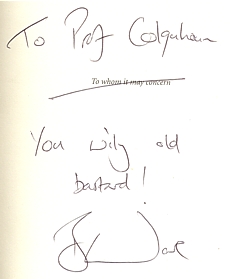 To Prof Colquhoun
To whom it may concern
You wily old
bastard!